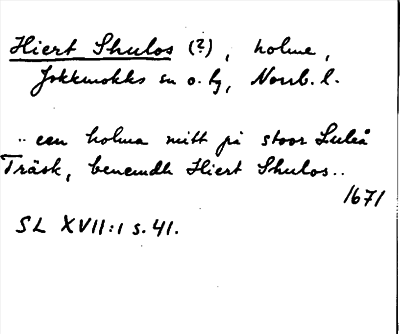 Hiert Shulos (?), holme,
Jokkmokks sn o. lg, Norrb. l.
.. een holma mitt på stoor Luleå
Träsk, benemdh Hiert Shulos..
1671
SL XVII:1 s. 41.